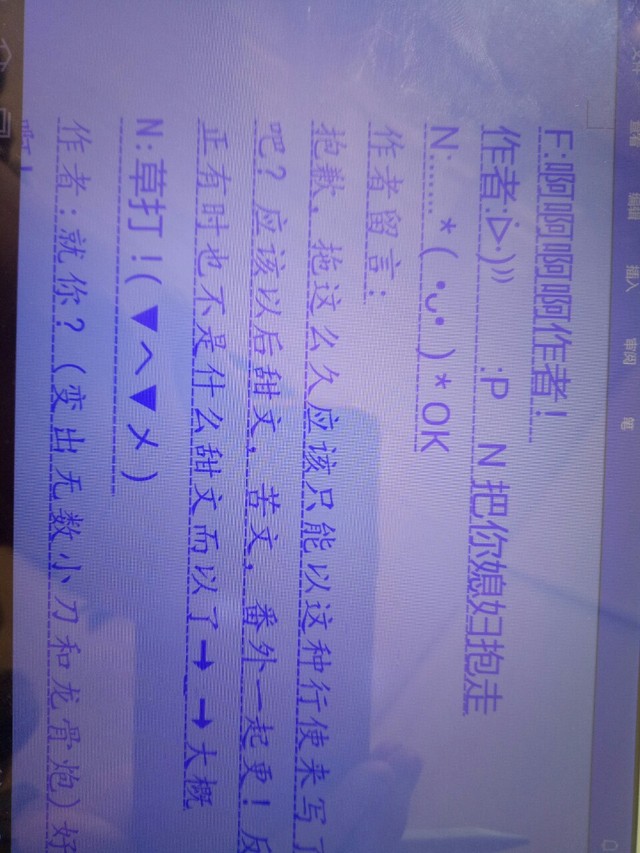 文件 查看 编辑 插入 审阅 笔
F:啊啊啊啊作者！
作者:ᐖ·)⁾⁾ :P N 把你媳妇抱走
N:……*( •ᴗ• )*OK
作者留言：
抱歉，拖这么久应该只能以这种行使来写了
吧？应该以后甜文，苦文，番外一起更！反
正有时也不是什么甜文而以了→→大概
N:草打！(▼ヘ▼メ)
作者：就你？（变出无数小刀和龙骨炮）好